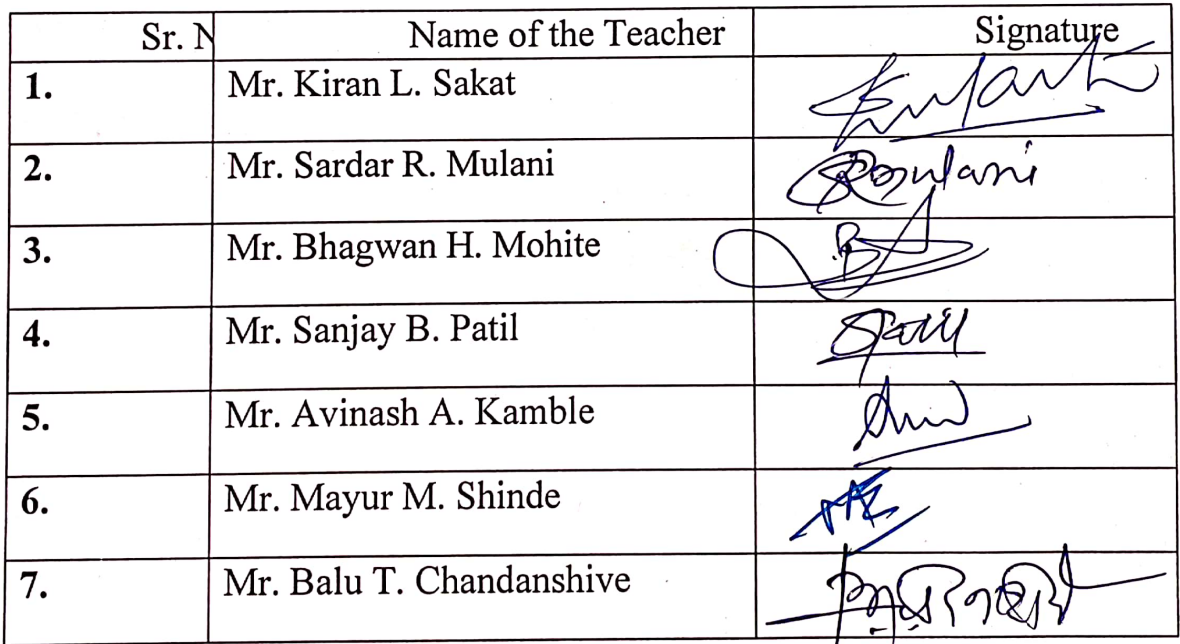 Sr. N Name of the Teacher Signature
1. Mr. Kiran L. Sakat
2. Mr. Sardar R. Mulani
3. Mr. Bhagwan H. Mohite
4. Mr. Sanjay B. Patil
5. Mr. Avinash A. Kamble
6. Mr. Mayur M. Shinde
7. Mr. Balu T. Chandanshive